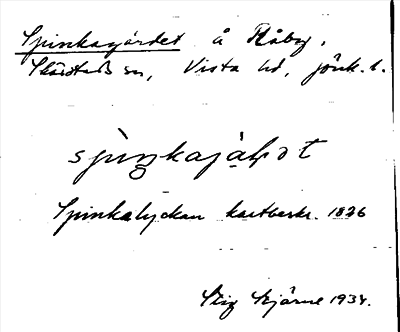 Spinkagärdet å Råby,
Skärstads sn, Vista hd, Jönk. l.
spiŋkajæḷət
Spinkalyckan kartbeskr. 1836
Stig Bjärne 1934.